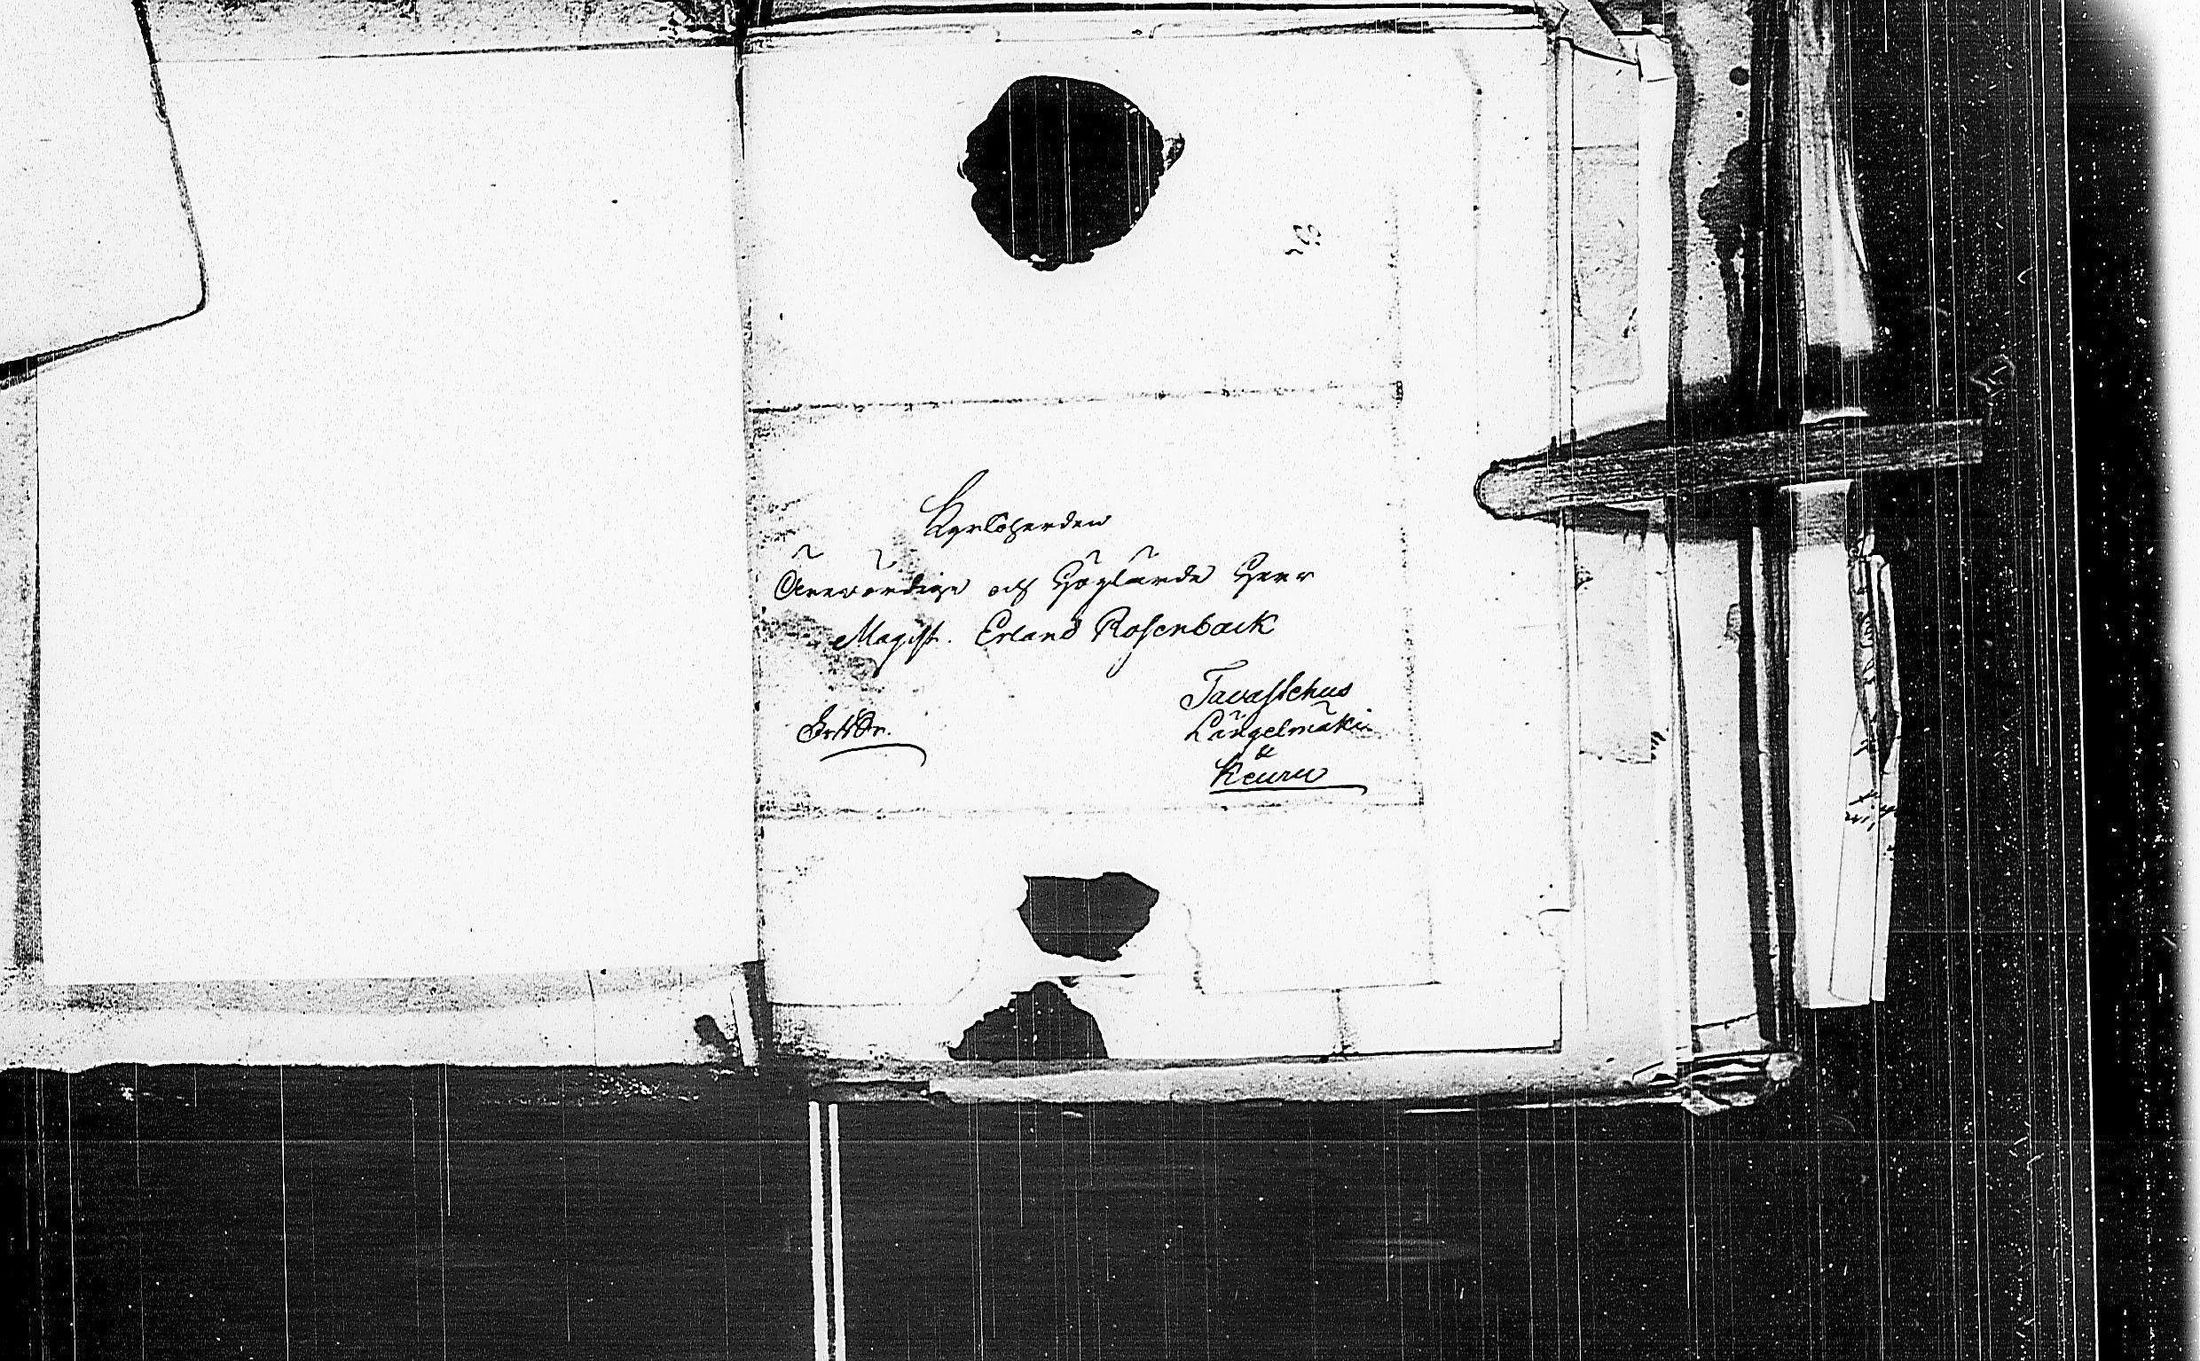 Kyrkoherden
Ärewördige och Höglärde Herr
Magist. Erland Rosenback
Tavastehus
Längelmäki
&
Keuru